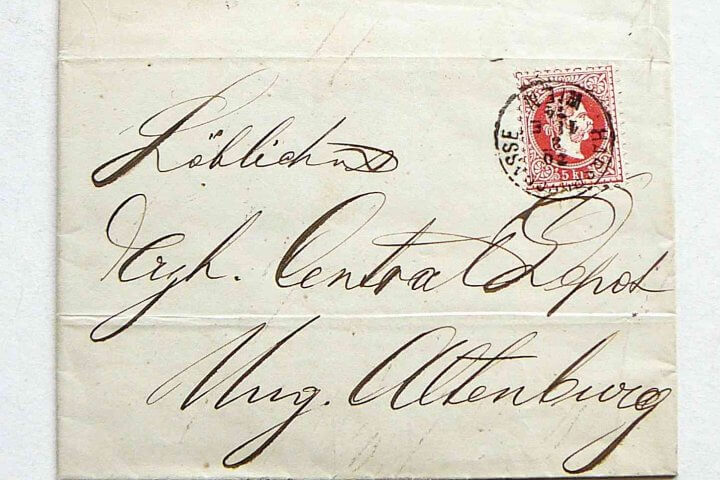 Löbliches
Erzh. Central Depot
Ung. Altenburg
5 kr.
WIEN